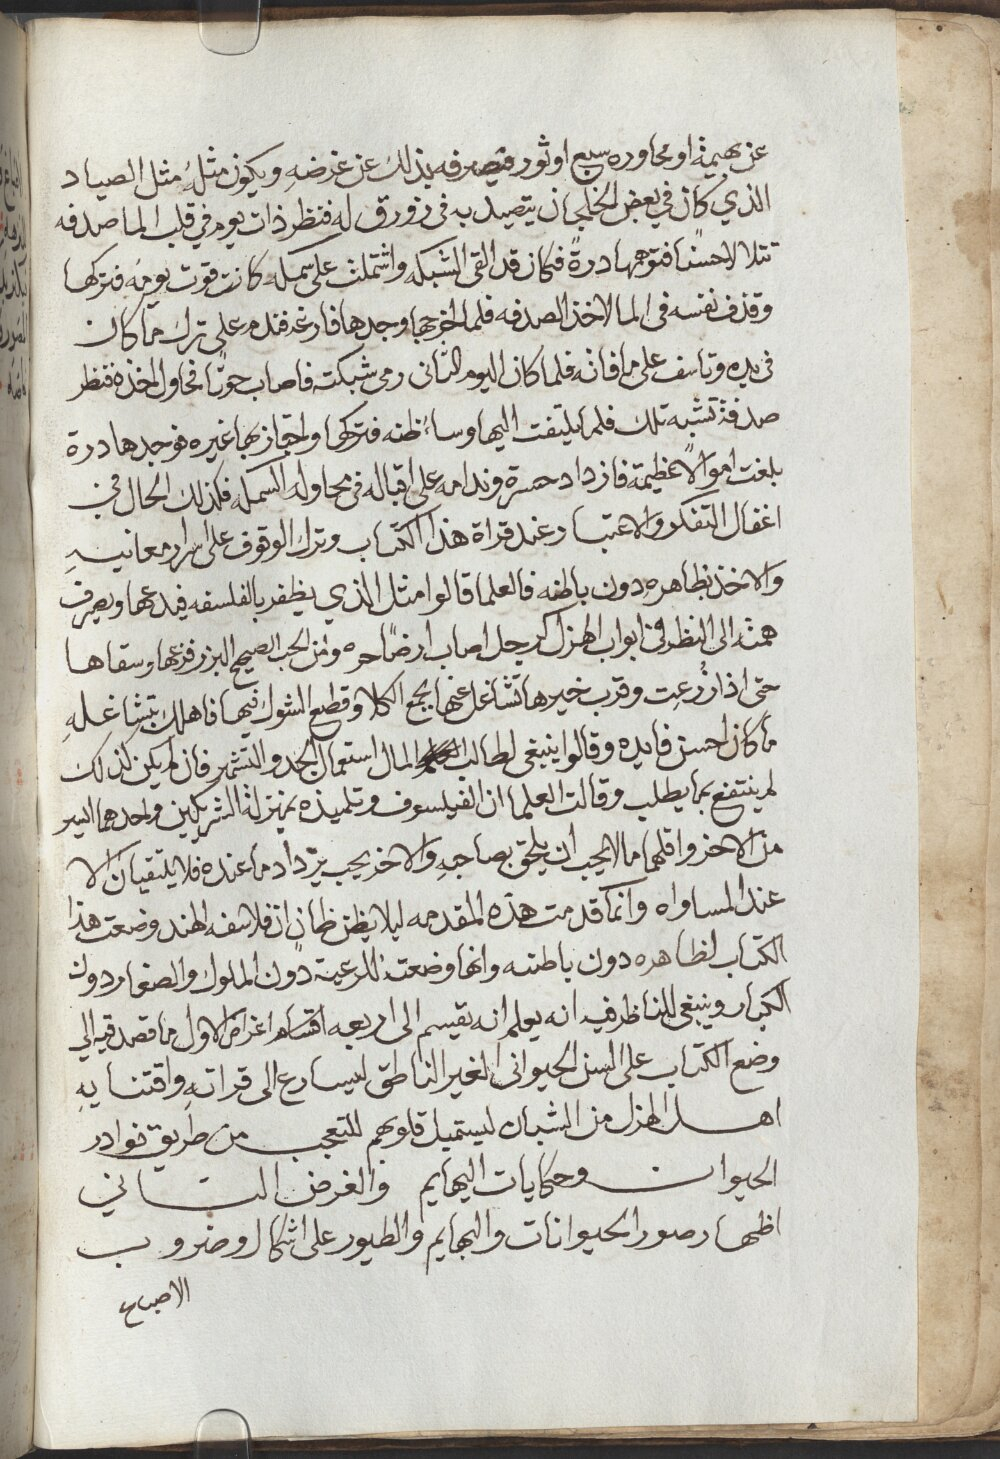 عن بهيمة او محاوره سبع او ثور فيصرفه بذلك عن غرضه ويكون مثله مثل الصياد
الذي كان في بعض الخلجان يتصيد به في زورق له فنظر ذات يوم في قلب الما صدفه
تتلالا حسنًا فتوهمها درة فكان قد القى الشبكه واشتملت على سمكه كانت قوت يومه فتركها
وقذف نفسه في الما لاخذ الصدفه فلما اخرجها وجدها فارغه فندم على ترك ما كان
في يده وتاسف على ما فاته فلما كان اليوم الثاني رمى شبكته فاصاب حوتًا فحاول اخذه فنظر
صدفة تشبه تلك فلم يلتفت اليها وساء ظنه فتركها واجتاز بها غيره فوجدها درة
بلغت اموالا عظيمة فازداد حسرة وندامه على اقباله في محاوله السمكه فكذلك الحال في
اغفال التفكر والاعتبار عند قراة هذا الكتاب وترك الوقوف على اسرار معانيه
والاخذ بظاهره دون باطنه فالعلما قالوا مثل الذي يظفر بالفلسفه فيدعها ويصرف
همته الى النظر في ابواب الهزل كرجل اصاب ارضًا حره ومن الحب الصحيح البزر فزرعها وسقاها
حتى اذا زُرعت وقرب خيرها تشاغل عنها بجمع الكلا وقطع الشوك فيها فاهلك بتشاغله
ما كان احسن فايده وقالوا ينبغي لطالب المال استعمال الجد والتشمير فان لم يكن كذلك
لم ينتفع بما يطلب وقالت العلما ان الفيلسوف وتلميذه بمنزلة الشريكين واحدهما ايسر
من الاخر واقلهما مالا يجب ان يلحق بصاحبه والاخر يحب يزداد ما عنده فلا يلتقيان الا
عند المساواه وانما قدمت هذه المقدمه ليلا يظن ظان ان فلاسفه الهند وضعت هذا
الكتاب لظاهره دون باطنه وانها وضعته للرعية دون الملوك والصغار دون
الكبار وينبغي للناظر فيه انه يعلم انه يقسم الى اربعه اقسام اغراض الاول ما قصد فيه الي
وضع الكتاب على السن الحيواني الغير الناطق ليسارع الى قراته واقتنايه
اهل الهزل من الشبان ليستميل قلوبهم للتعجب من طريق نوادر
الحيوان وحكايات البهايم والغرض الثاني
اظهار صور الحيوانات والبهايم والطيور على اشكال وضروب
الاصباغ